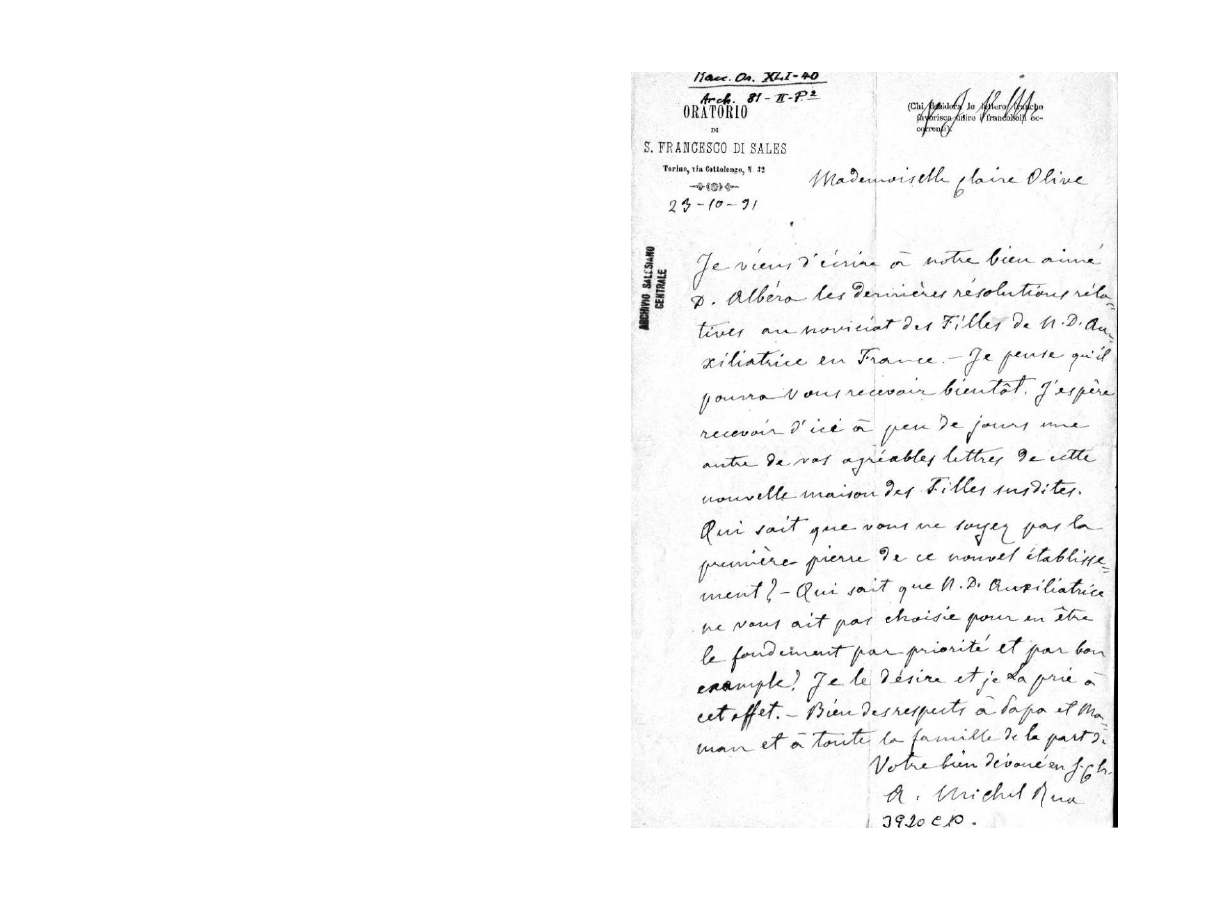 Man. On. XLI-40
Arch. 81-II-P.2
ORATORIO
DI
S. FRANCESCO DI SALES
Torino, via Cottolengo, N 32
23-10-91
(Chi desidera le lettere franche
favorisca unire i francobolli oc-
correnti).
Mademoiselle Claire Olive
ARCHIVIO SALESIANO
CENTRALE
Je viens d'écrire à notre bien aimé
D. Albéra les dernières résolutions réla-
tives au noviciat des Filles de N.D. Au-
xiliatrice en France. - Je pense qu'il
pourra vous recevoir bientôt. J'espère
recevoir d'ici à peu de jours une
autre de vos agréables lettres de cette
nouvelle maison des Filles susdites.
Qui sait que vous ne soyez pas la
première pierre de ce nouvel établisse-
ment? - Qui sait que N.D. Auxiliatrice
ne vous ait pas choisie pour en être
le fondement par priorité et par bon
example? Je le désire et je La prie à
cet effet. - Bien des respects à Papa et Ma-
man et à toute la famille de la part de
Votre bien dévoué en J. Ch.
A. Michel Rua
3920 C.P.